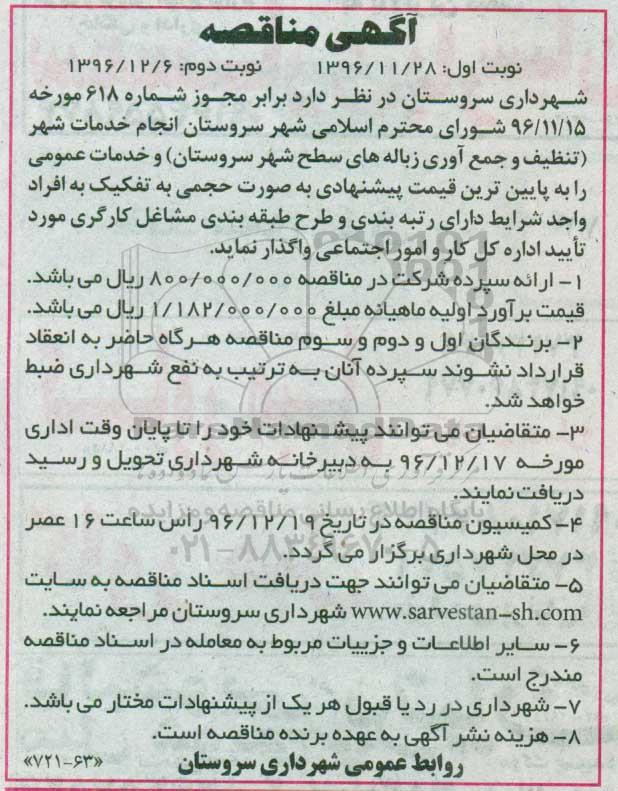 آگهی مناقصه
نوبت اول: ۱۳۹۶/۱۱/۲۸ نوبت دوم: ۱۳۹۶/۱۲/۶
شهرداری سروستان در نظر دارد برابر مجوز شماره ۶۱۸ مورخه
۹۶/۱۱/۱۵ شورای محترم اسلامی شهر سروستان انجام خدمات شهر
(تنظیف و جمع آوری زباله های سطح شهر سروستان) و خدمات عمومی
را به پایین ترین قیمت پیشنهادی به صورت حجمی به تفکیک به افراد
واجد شرایط دارای رتبه بندی و طرح طبقه بندی مشاغل کارگری مورد
تأیید اداره کل کار و امور اجتماعی واگذار نماید.
۱- ارائه سپرده شرکت در مناقصه ۸۰۰/۰۰۰/۰۰۰ ریال می باشد.
قیمت برآورد اولیه ماهیانه مبلغ ۱/۱۸۲/۰۰۰/۰۰۰ ریال می باشد.
۲- برندگان اول و دوم و سوم مناقصه هرگاه حاضر به انعقاد
قرارداد نشوند سپرده آنان به ترتیب به نفع شهرداری ضبط
خواهد شد.
۳- متقاضیان می توانند پیشنهادات خود را تا پایان وقت اداری
مورخه ۹۶/۱۲/۱۷ به دبیرخانه شهرداری تحویل و رسید
دریافت نمایند.
۴- کمیسیون مناقصه در تاریخ ۹۶/۱۲/۱۹ راس ساعت ۱۶ عصر
در محل شهرداری برگزار می گردد.
۵- متقاضیان می توانند جهت دریافت اسناد مناقصه به سایت
www.sarvestan-sh.com شهرداری سروستان مراجعه نمایند.
۶- سایر اطلاعات و جزییات مربوط به معامله در اسناد مناقصه
مندرج است.
۷- شهرداری در رد یا قبول هر یک از پیشنهادات مختار می باشد.
۸- هزینه نشر آگهی به عهده برنده مناقصه است.
روابط عمومی شهرداری سروستان «۷۲۱-۶۳»